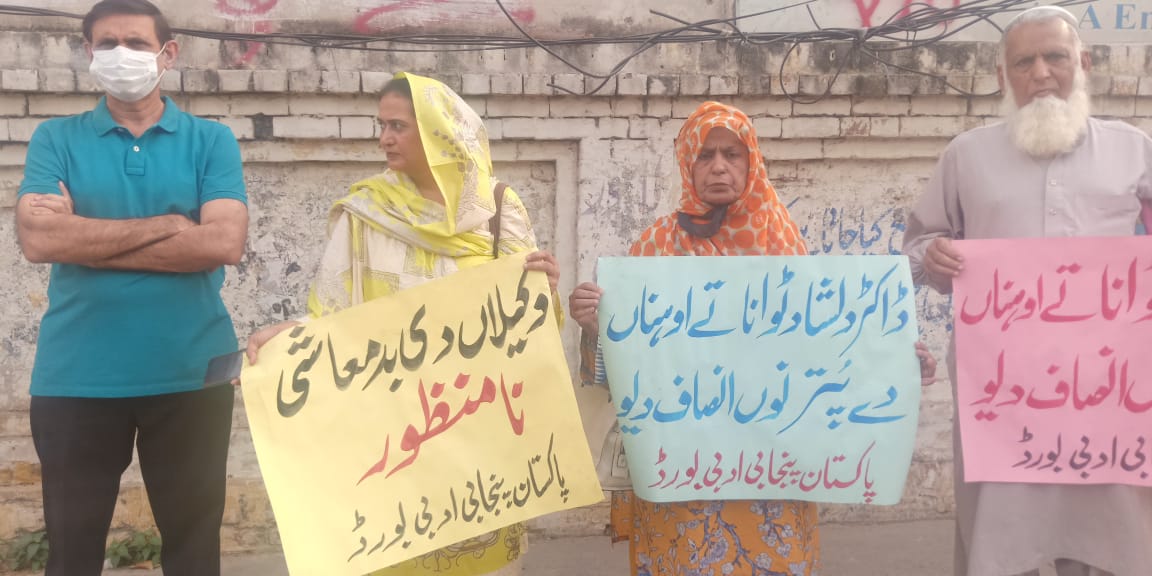 A En
وکیلاں دی بدمعاشی
نا منظور
پاکستان پنجابی ادبی بورڈ
ڈاکٹر دلشاد ٹوانا تے اوہناں
دے پُتر نوں انصاف دلیو
پاکستان پنجابی ادبی بورڈ
وانا تے اوہناں
ں انصاف دلیو
بی ادبی بورڈ